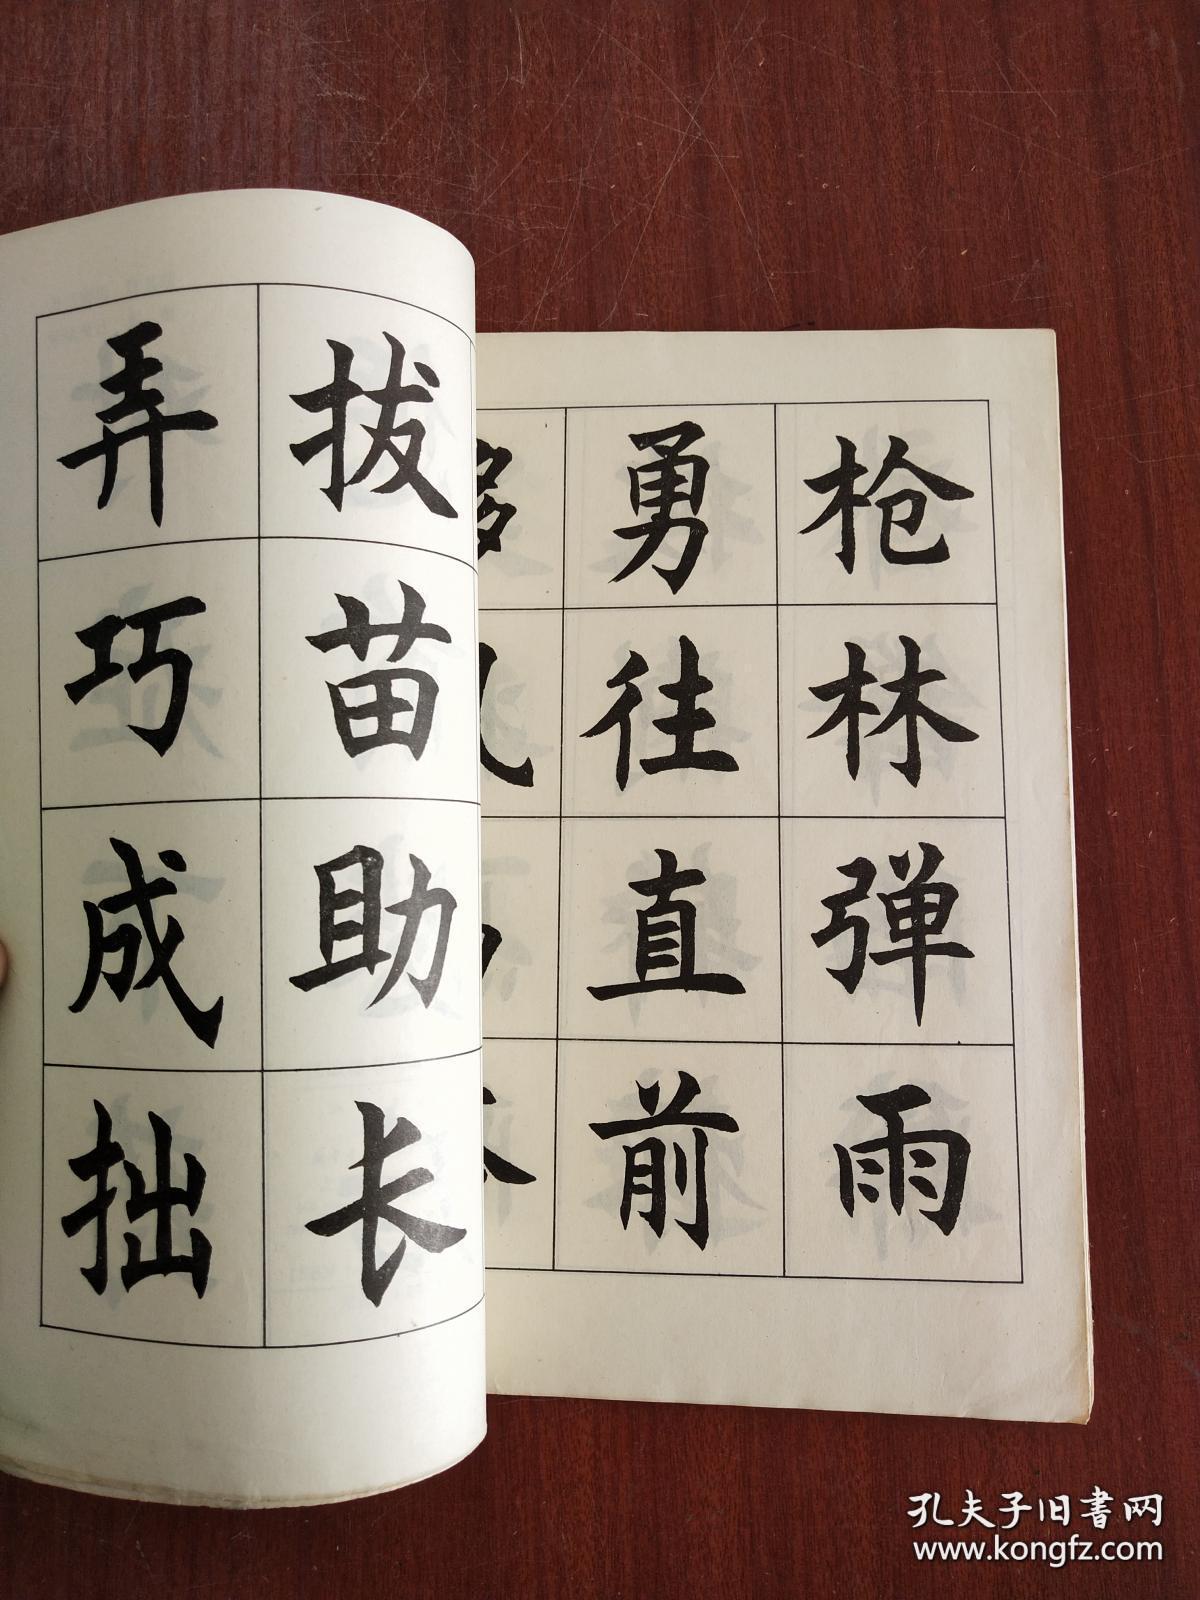 枪林弹雨
勇往直前
拔苗助长
弄巧成拙
孔夫子旧书网
www.kongfz.com